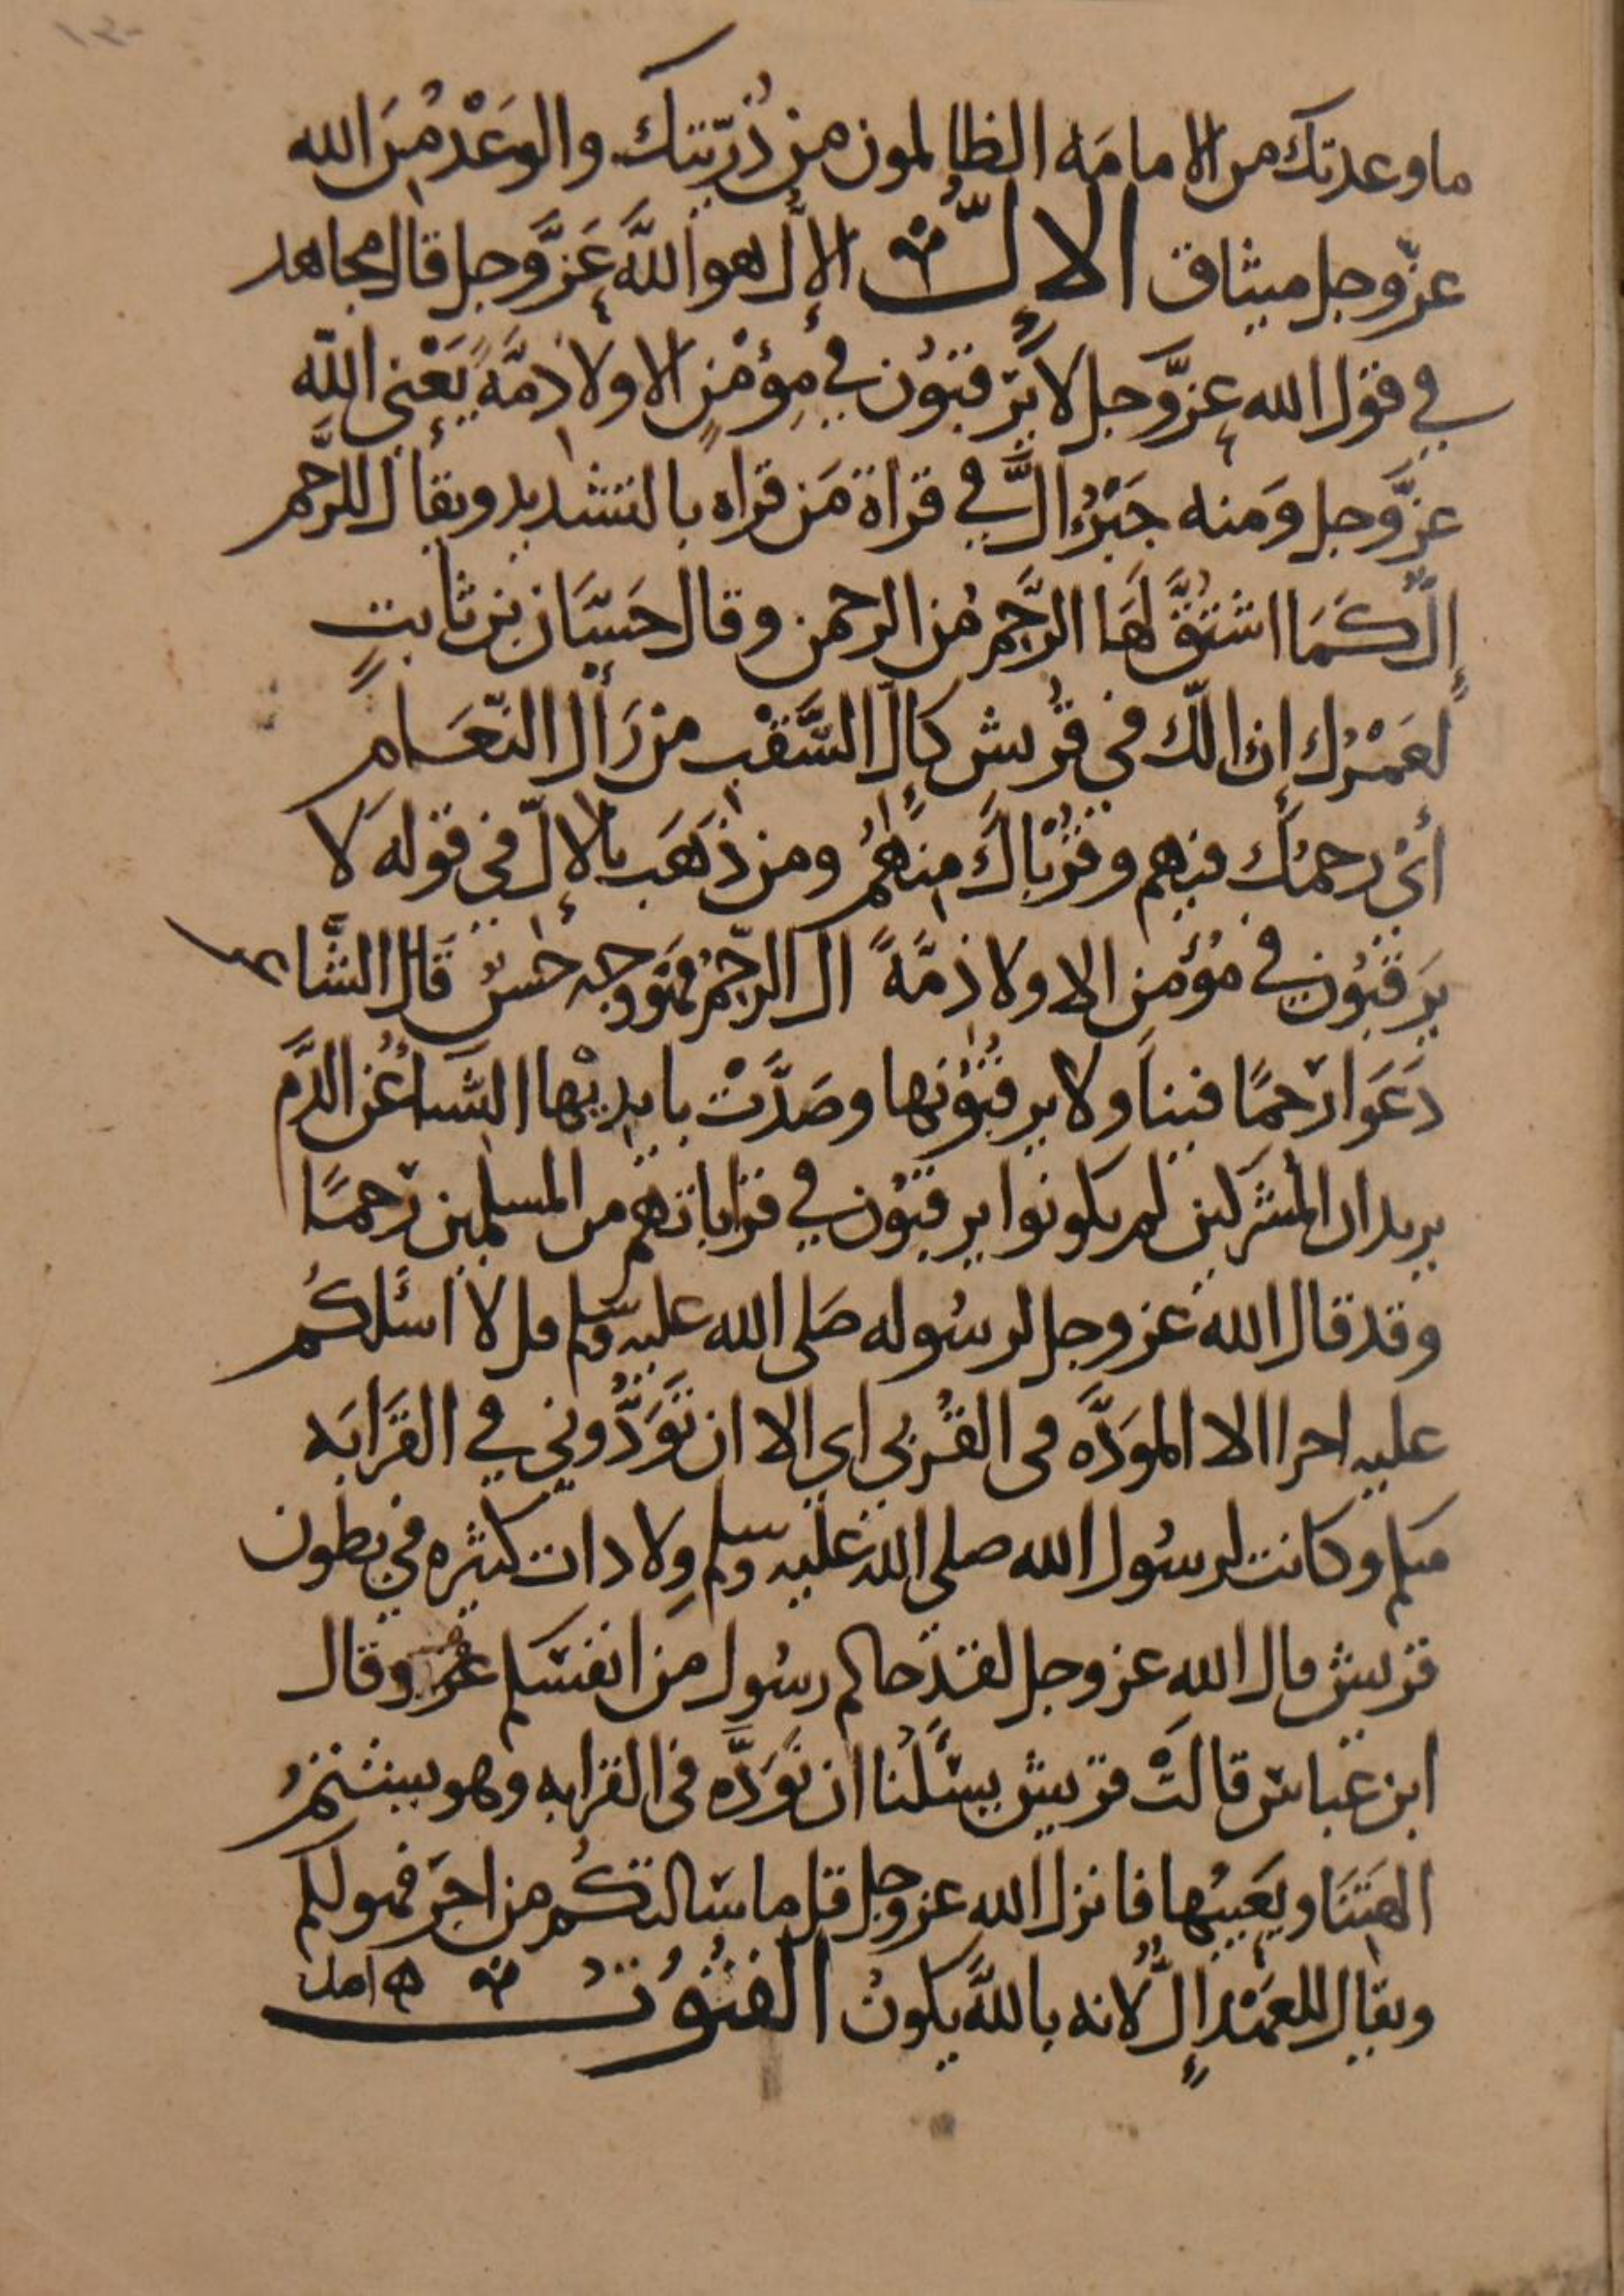 ما وعدتك من الامامَة الظالمون من ذُرّيّتك والوَعْدُ مِنَ الله
عزّ وجل ميثاق الاِلُّ الاِلُّ هو اللَّهَ عَزَّ وجل قال مجاهد
في قول الله عزَّ وجل لا يَرقبُون في مِؤْمِنٍ الا ولا ذمَّةً يَعْني اللّه
عزَّ وجل وَمنه جَبْرُاِلَّ في قراة مَن قراه بالتشديد ويقال للرَّحِم
إلٌّ كَمَا اشتُقَّ لَهَا الرَّحِمُ مُن الرحمن وقال حَسَّان بن ثابتٍ
لَعَمْرُك إن الّك في قُريش كاِلّ السَّقْبِ من رَأْل النّعَام
أيْ رحمَك فيهم وقُرْباكَ مِنهُم ومن ذَهَبَ بالإلّ في قوله لا
يَرقبُون في مُؤمن الا ولا ذمَّةً الى الرّحِمُ فهَو وجه حَسنٌ قَال الشَّاعر
دَعَوا رَحمًا فينا ولا يرقبُونها وصَدَّتْ بايديْها النّسَاءُ عُن الدَّم
يريد ان المُشركين لم يكونوا يرقبُون في قراباتهم من المسلمين رَحمًا
وقد قال الله عز وجل لرسُوله صَلى الله عليه وسلم قل لا اسئلكُم
عليه اجرا الا الموَدَّه في القُربى اي الا ان تَوَدُّوني في القَرَابَه
منكم وكانت لرسُول الله صلى الله عليه وسلم وِلادات كثيره في بطون
قريش قال الله عز وجل لقد جاكم رسُول من انفسكم وقال
ابن عباس قالَتْ قريش يسَئَلُنا ان نَوَدَّه في القرابه وهو يشتمُ
الهتَنَا ويَعيبُها فانزل الله عز وجل قل ما سَالتكُم من اجرٍ فهو لكم
ويقال للعَهْد إلٌّ لانه باللَّه يكونُ القنُوُتُ